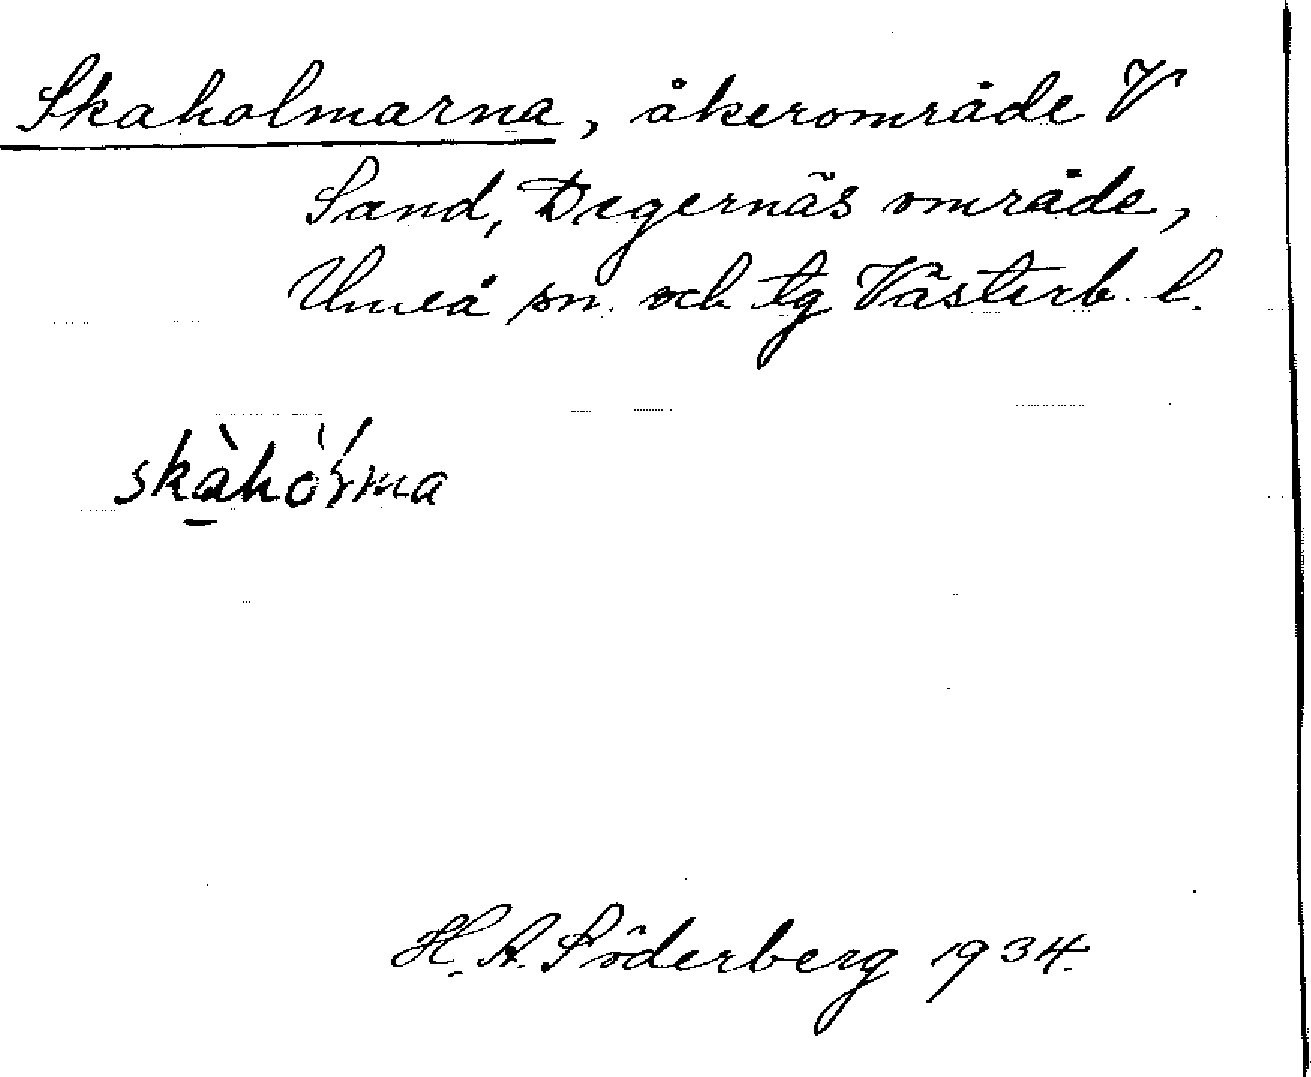 Skaholmarna, åkerområde V
Sand, Degernäs område,
Umeå sn. och tg Västerb. l.
H. A. Söderberg 1934.